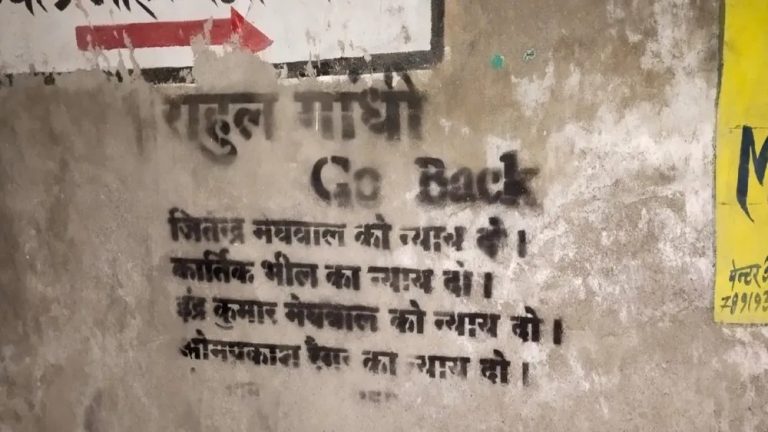 राहुल गांधी
Go Back
जितेन्द्र मेघवाल को न्याय दो।
कार्तिक भील को न्याय दो।
इंद्र कुमार मेघवाल को न्याय दो।
ओमप्रकाश रैगर को न्याय दो।
M
पेन्टर